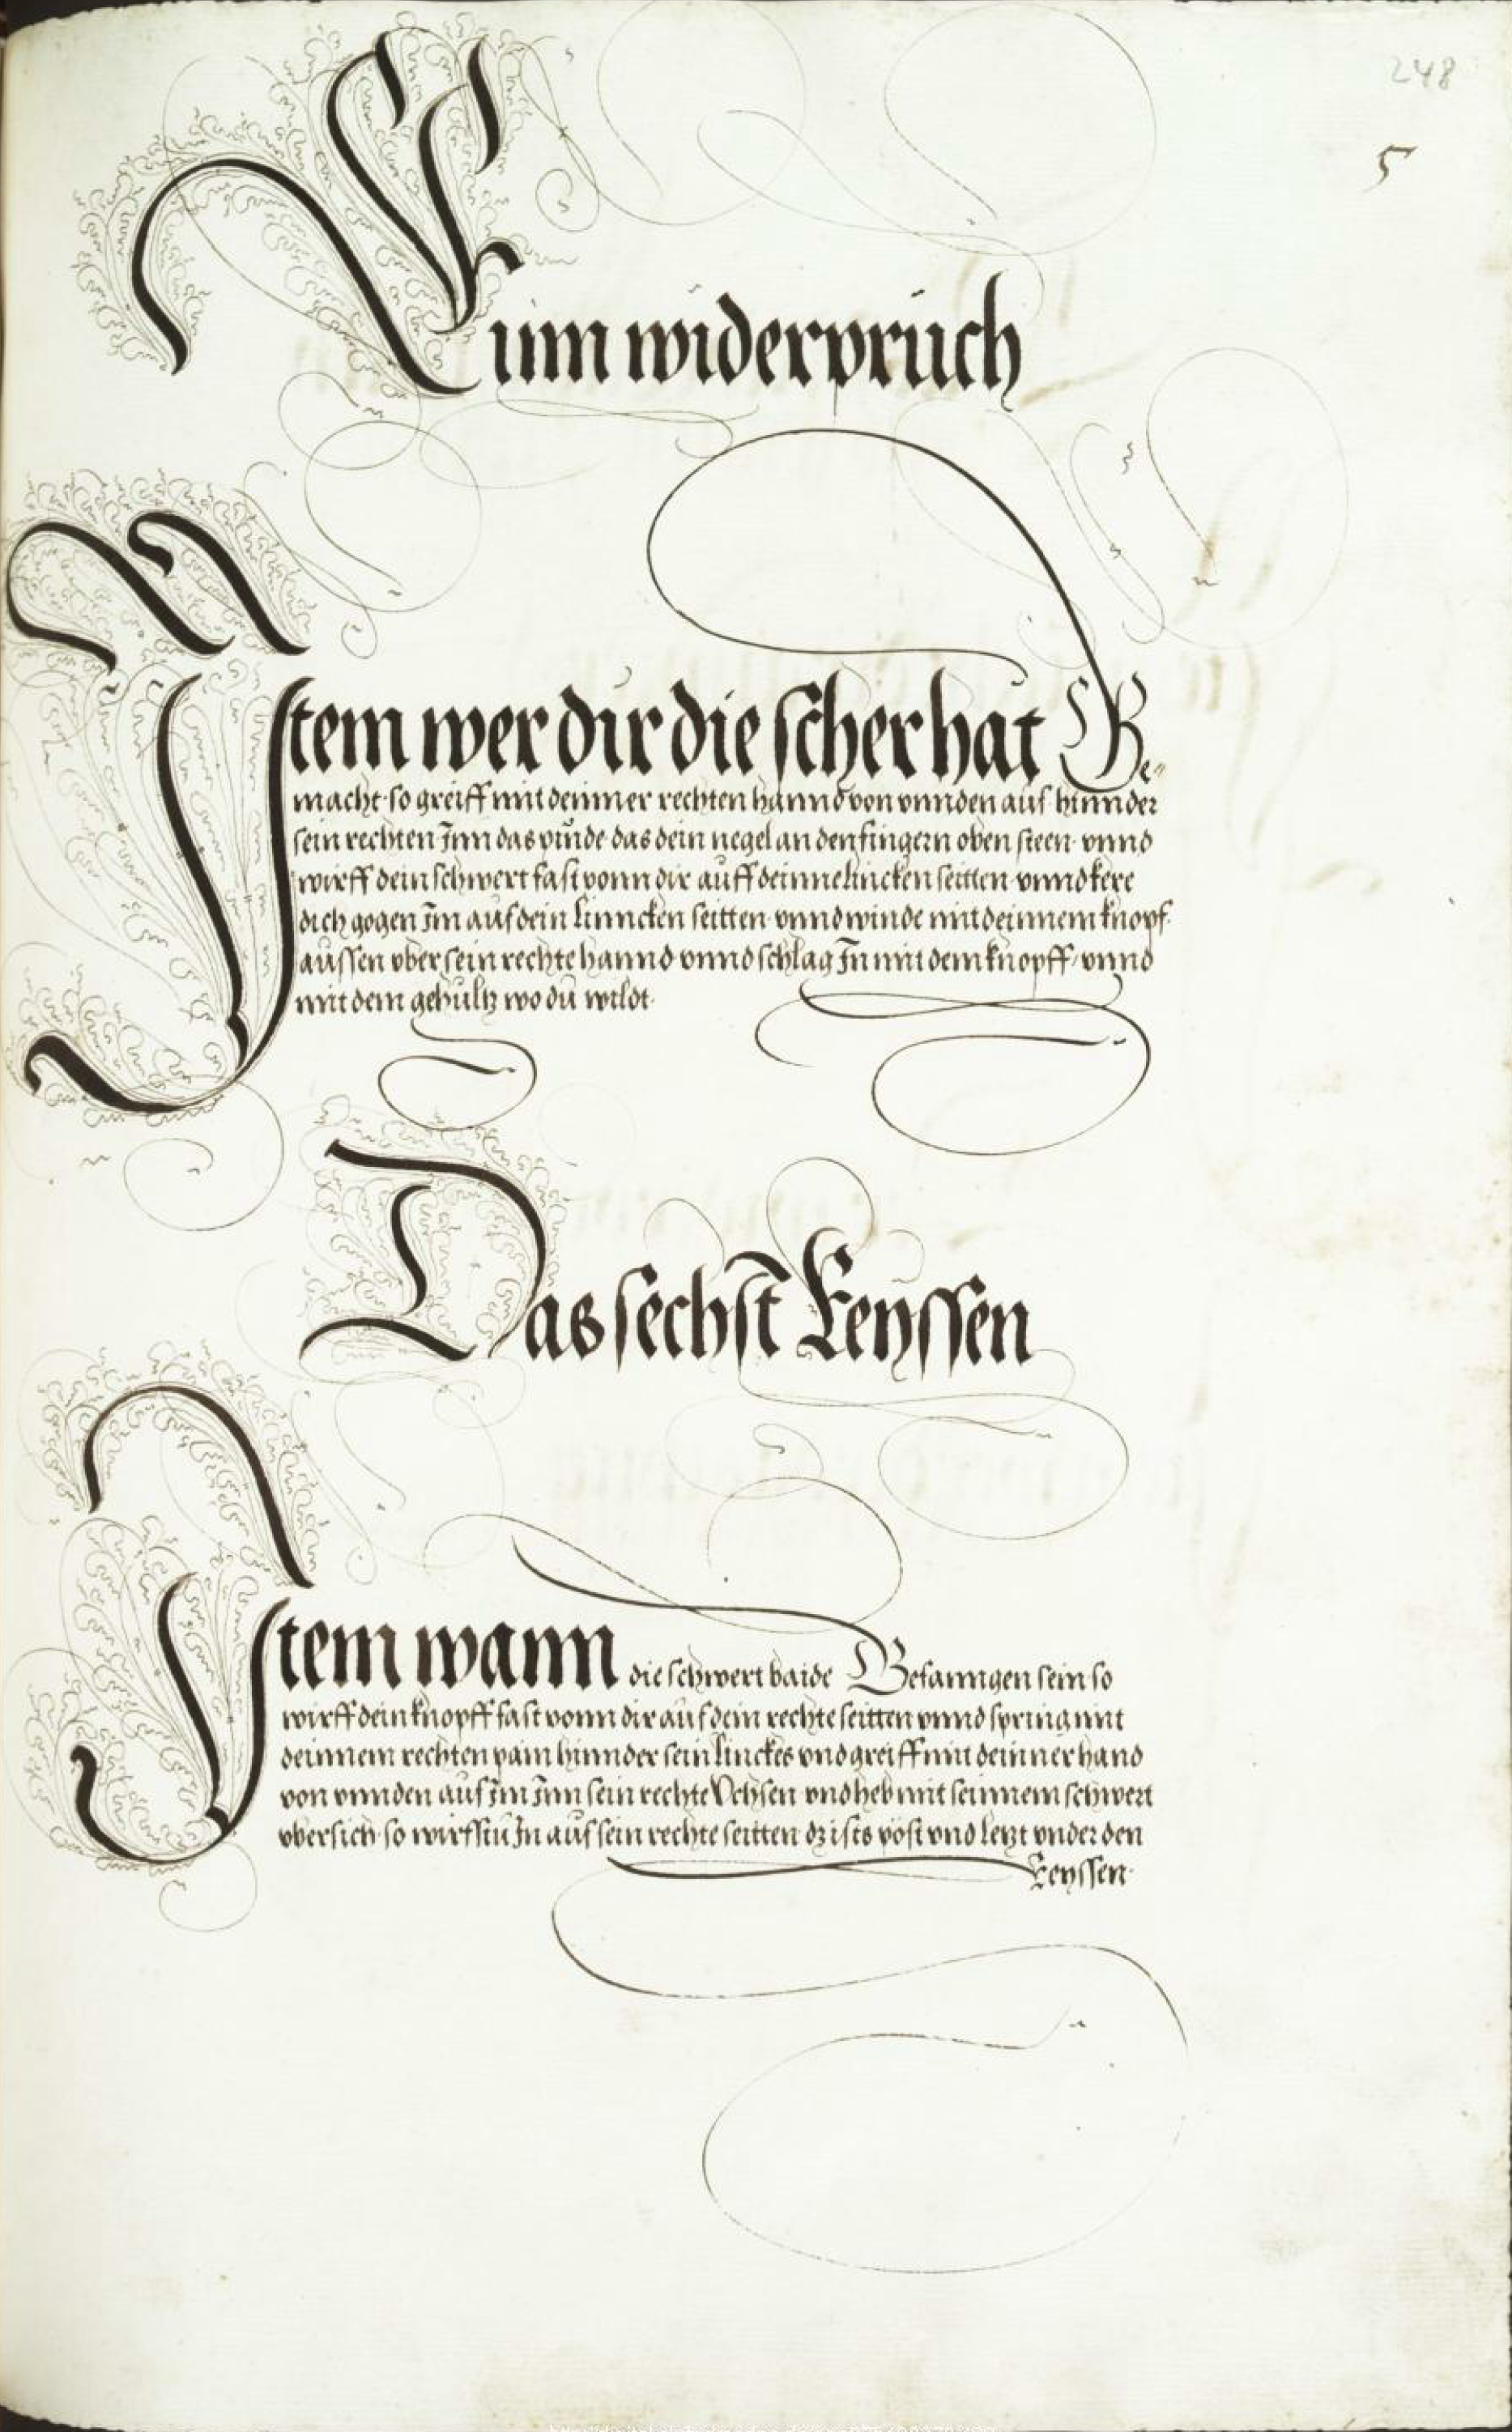 248
5
Zum widerpruch
Item wer dir die scher hat Ge„
macht· so greiff mit deinner rechten hannd von vnnden auf hinnder
sein rechten Jnn das pünde das dein negel an den fingern oben steen· vnnd
wirff dein schwert fast vonn dir auff dein linncken seitten· vnnd kere
dich gogen Jm auf dein linncken seitten· vnnd winde mit deinnem knopf
aussen vber sein rechte hannd vnnd schlag Jn mit dem knopff· vnnd
mit dem gehultz wo du wildt·
Das sechst Reyssen
Item wann die schwert baide Gefanngen sein so
wirff dein knopff fast vonn dir auf dein rechte seitten vnnd spring mit
deinnem rechten pain hinnder sein linckes vnd greiff mit deinner hand
von vnnden auf Jm Jnn sein rechte Vchsen vnd heb mit seinnem schwert
vbersich· so wirfstu Jn auf sein rechte seitten· dz ists pöst vnd letzt vnder den
Reyssen·